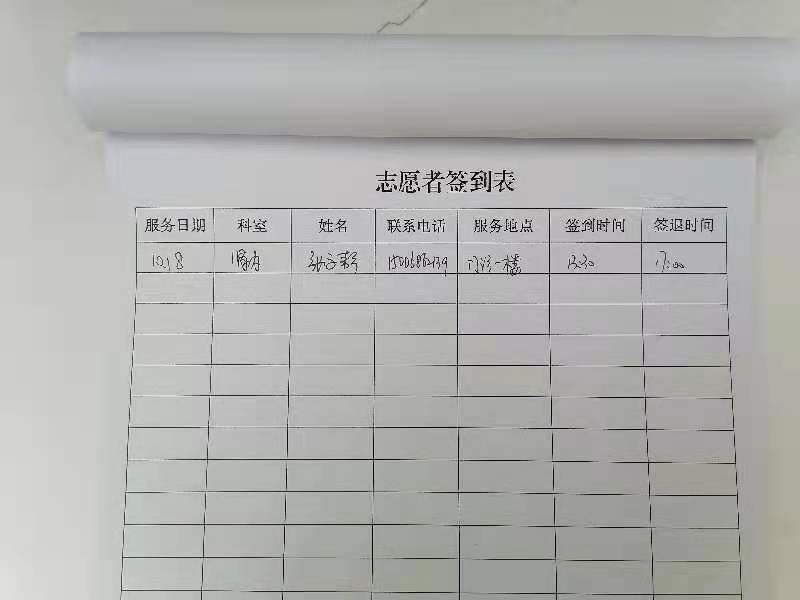 志愿者签到表
服务日期 科室 姓名 联系电话 服务地点 签到时间 签退时间
10.18 肾内 门诊一楼 13:30 17:00